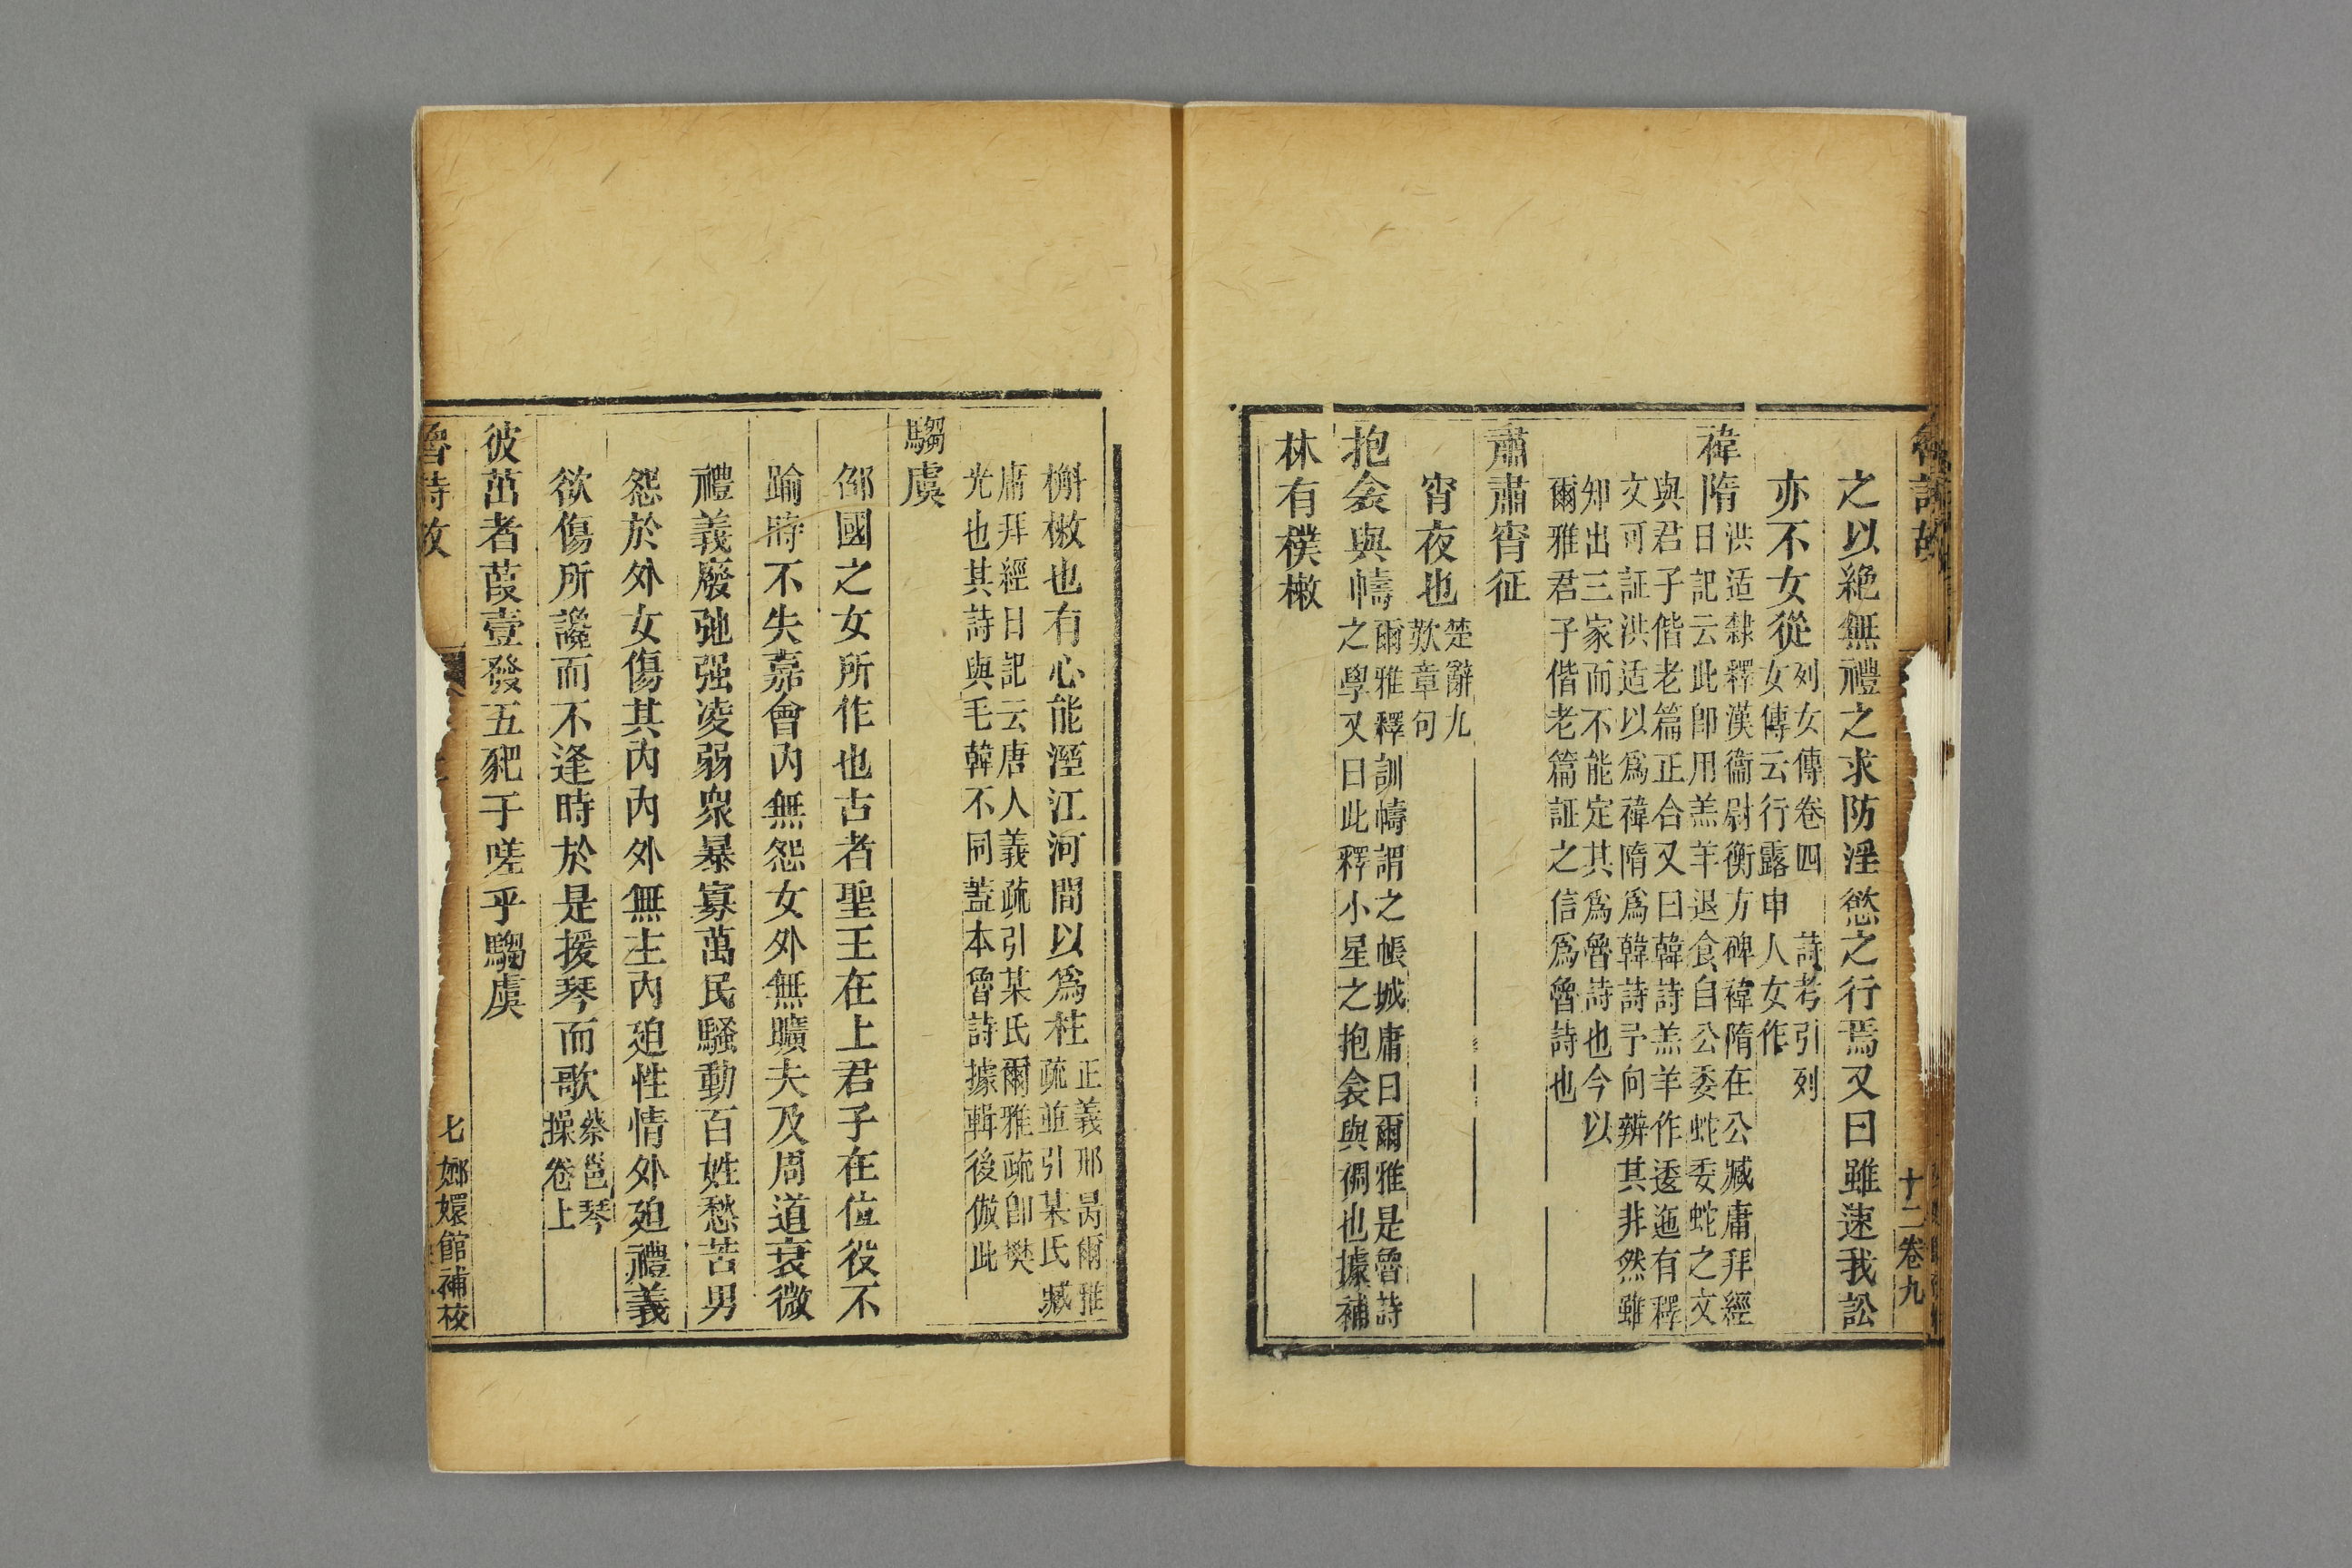 魯詩故
十二卷九
之以絶無禮之求防淫慾之行焉又曰雖速我訟
亦不女從列女傳卷四 詩考引列
女傳云行露申人女作
褘隋洪适隸釋漢衞尉衡方碑褘隋在公臧庸拜經
日記云此卽用羔羊退食自公委蛇委蛇之文
與君子偕老篇正合又曰韓詩羔羊作逶迤有釋
文可証洪适以爲褘隋爲韓詩予向辨其非然雖
知出三家而不能定其爲魯詩也今以
爾雅君子偕老篇証之信爲魯詩也
肅肅宵征
宵夜也楚辭九
歎章句
抱衾與幬爾雅釋訓幬謂之帳城庸曰爾雅是魯詩
之學又曰此釋小星之抱衾與裯也據補
林有樸樕
槲樕也有心能溼江河間以爲柱正義邢昺爾雅
疏並引某氏臧
庸拜經日記云唐人義疏引某氏爾雅疏卽樊
光也其詩與毛韓不同蓋本魯詩據輯後倣此
騶虞
邵國之女所作也古者聖王在上君子在位役不
踰時不失嘉會内無怨女外無曠夫及周道衰微
禮義廢弛强凌弱衆暴寡萬民騷動百姓愁苦男
怨於外女傷其内内外無主内廹性情外廹禮義
欲傷所讒而不逢時於是援琴而歌蔡邕琴
操卷上
彼茁者葭壹發五豝于嗟乎騶虞
魯詩故
七 嫏嬛館補校